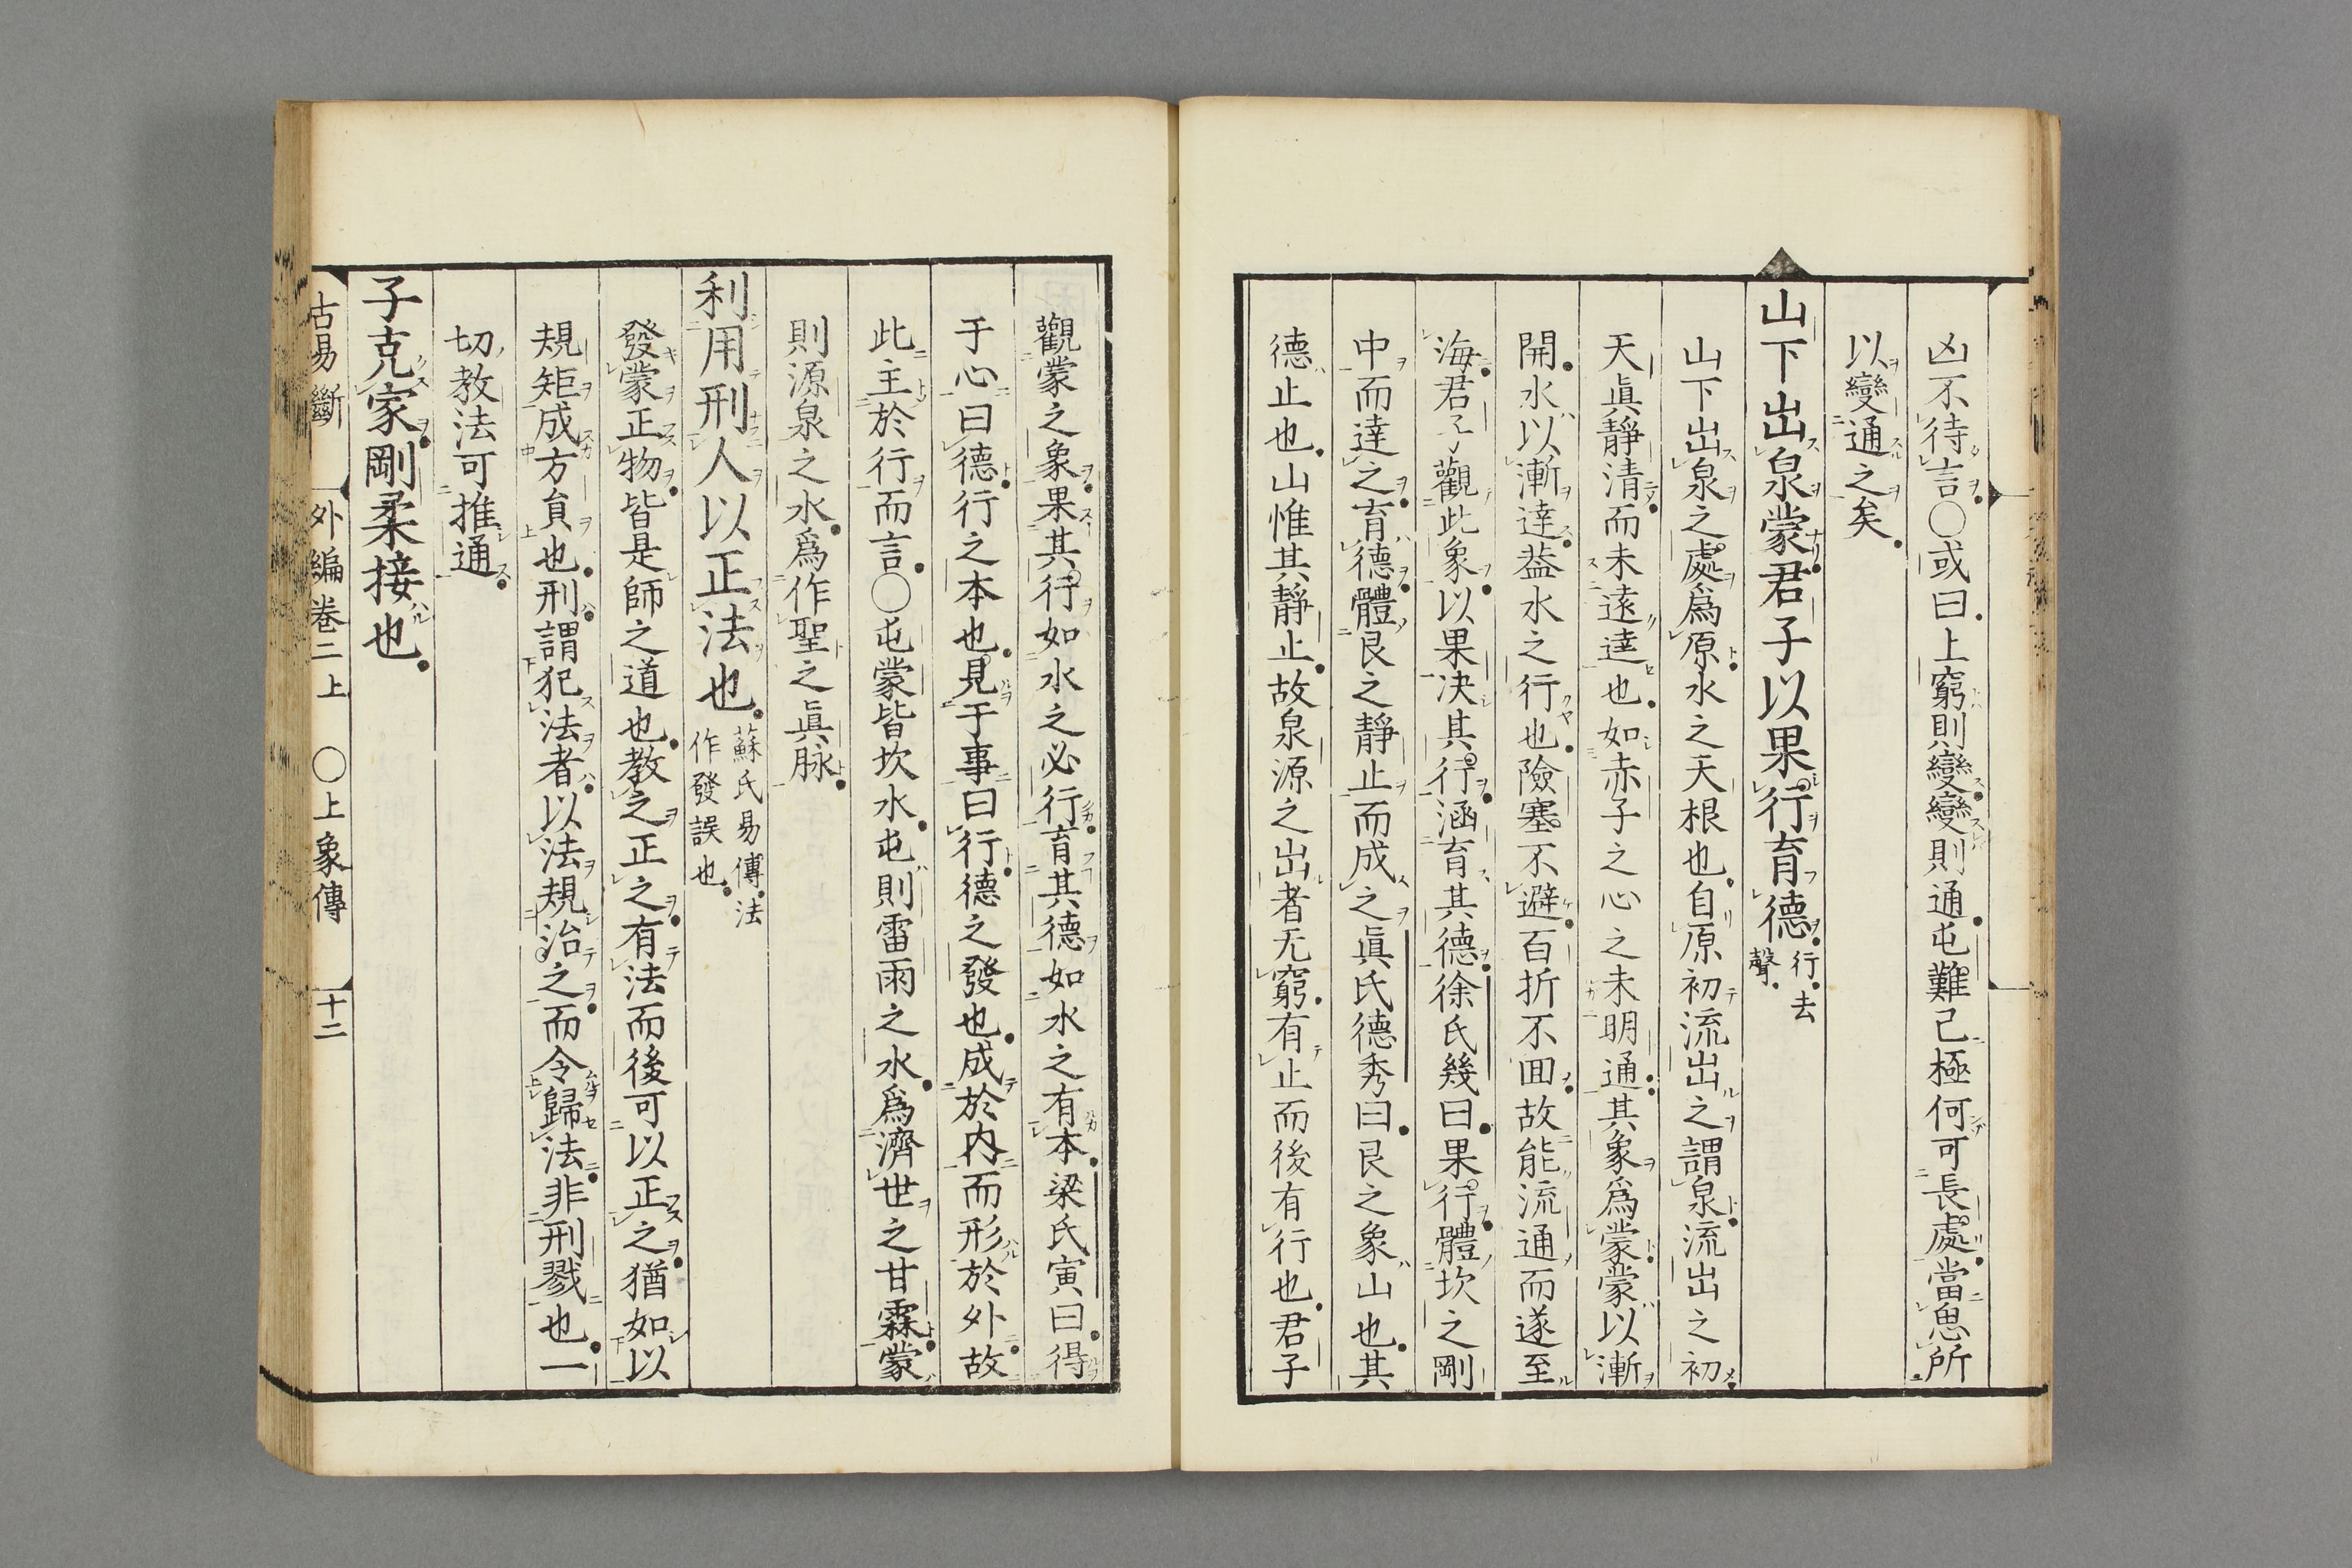 凶不待言○或曰上窮則變變則通屯難己極何可長處當思所
以變通之矣
山下出泉蒙君子以果行育德行去
聲
山下出泉之處爲原水之天根也自原初流出之謂泉流出之初
天眞靜清而未遠達也如赤子之心之未明通其象爲蒙蒙以漸
開水以漸達葢水之行也險塞不避百折不回故能流通而遂至
海君子觀此象以果决其行涵育其德徐氏幾曰果行體坎之剛
中而達之育德體艮之靜止而成之眞氏德秀曰艮之象山也其
德止也山惟其靜止故泉源之出者无窮有止而後有行也君子
觀蒙之象果其行如水之必行育其德如水之有本梁氏寅曰得
于心曰德行之本也見于事曰行德之發也成於内而形於外故
此主於行而言○屯蒙皆坎水屯則雷雨之水爲濟世之甘霖蒙
則源泉之水爲作聖之眞脉
利用刑人以正法也蘇氏易傳法
作發誤也
發蒙正物皆是師之道也教之正之有法而後可以正之猶如以
規矩成方員也刑謂犯法者以法規治之而令歸法非刑戮也一
切教法可推通
子克家剛柔接也
古易斷 外編卷二上 ○上象傳 十二